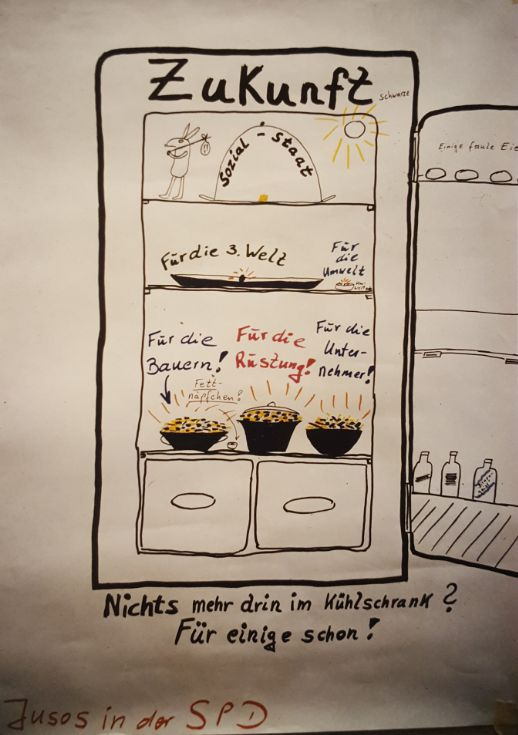 Zukunft
schwarze
Sozial-Staat
Einige faule Eie
Für die 3. Welt
Für
die
Umwelt
Für die
Bauern!
Für die
Rüstung!
Für die
Unter-
nehmer!
Fett-
näpfchen?
Nichts mehr drin im Kühlschrank?
Für einige schon!
Jusos in der SPD